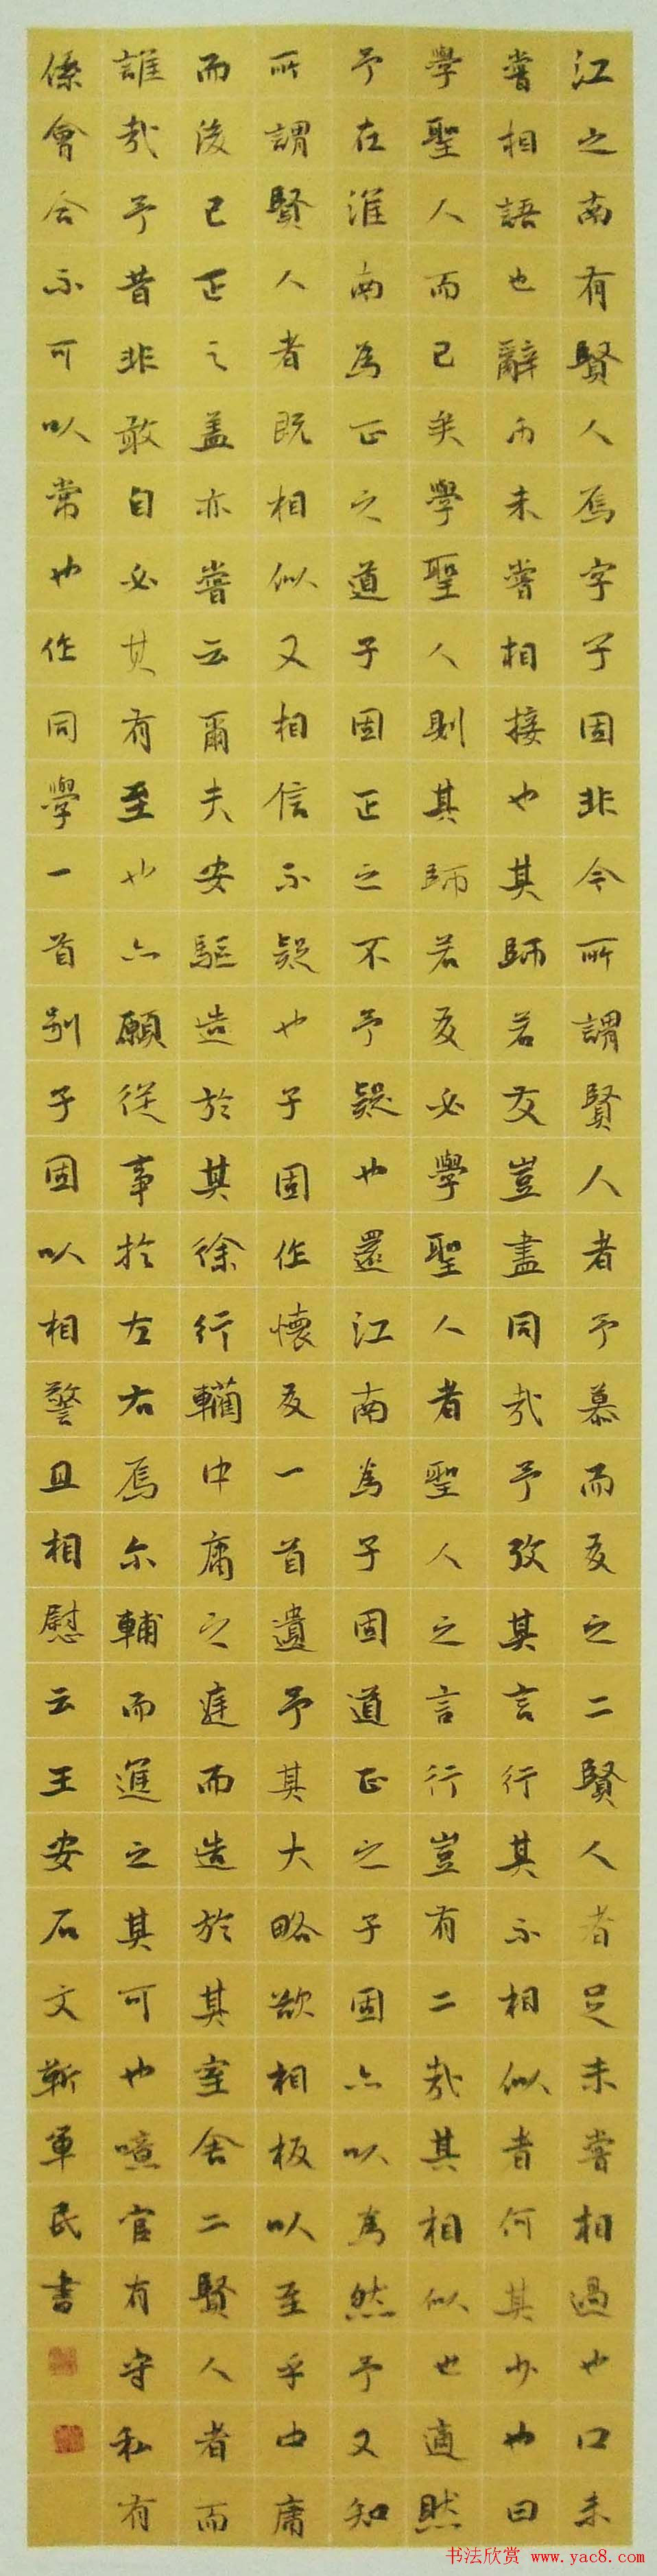 江之南有賢人焉字子固非今所謂賢人者予慕而友之二賢人者足未嘗相過也口未
嘗相語也辭币未嘗相接也其師若友豈盡同哉予攷其言行其不相似者何其少也曰
學聖人而已矣學聖人則其師若友必學聖人者聖人之言行豈有二哉其相似也適然
予在淮南為正之道子固正之不予疑也還江南為子固道正之子固亦以為然予又知
所謂賢人者既相似又相信不疑也子固作懷友一首遺予其大略欲相板以至乎中庸
而後已正之盖亦嘗云爾夫安驅造於其徐行轥中庸之庭而造於其室舍二賢人者而
誰哉予昔非敢自必其有至也亦願從事於左右焉尔輔而進之其可也噫官有守私有
係會合不可以常也作同學一首別子固以相警且相慰云王安石文靳軍民書
书法欣赏 www.yac8.com